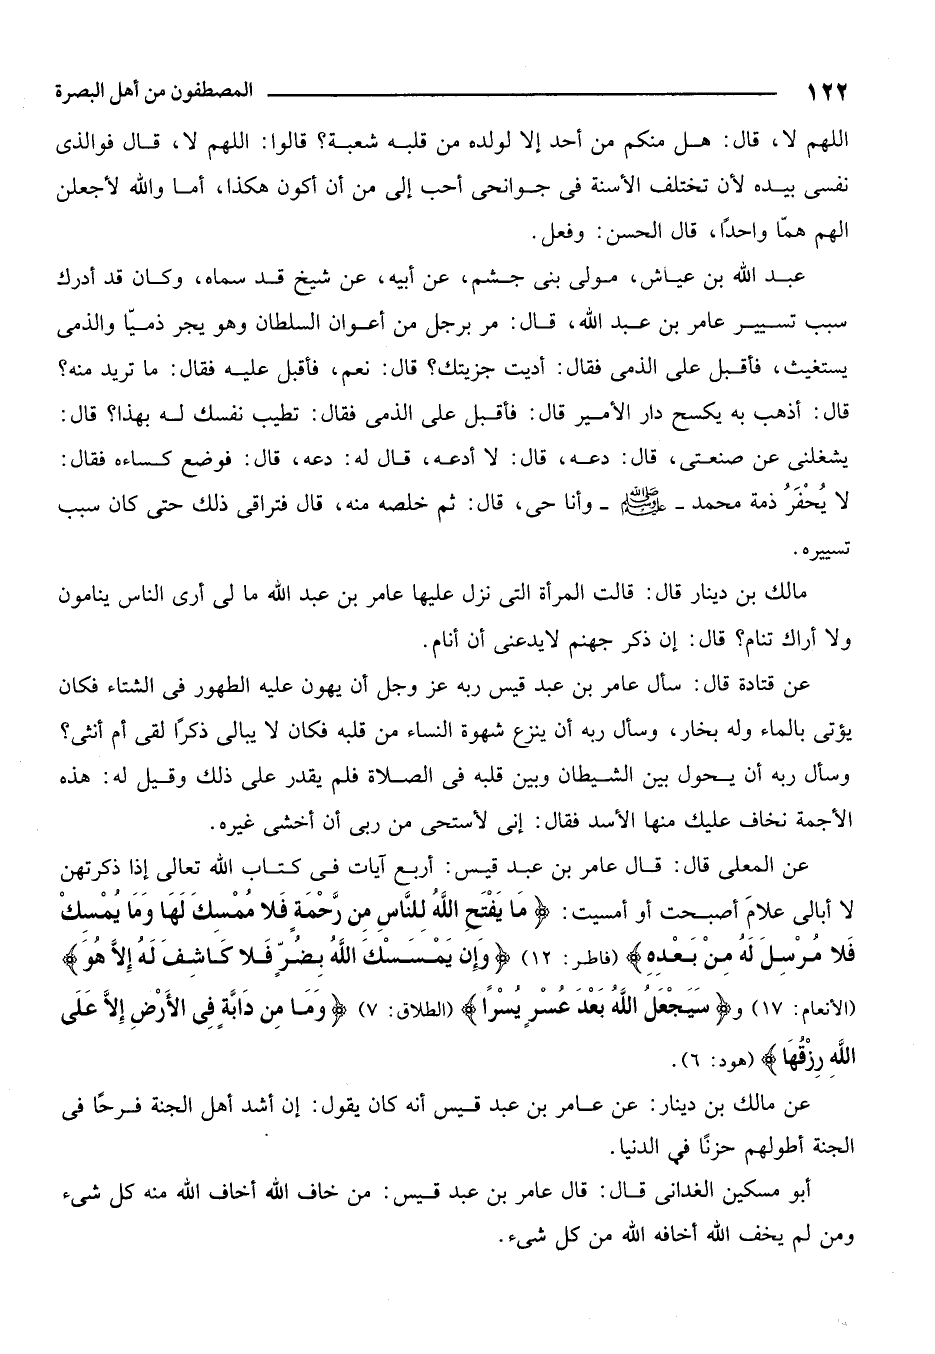 ١٢٢ المصطفون من أهل البصرة
اللهم لا، قال: هل منكم من أحد إلا لولده من قلبه شعبة؟ قالوا: اللهم لا، قال فوالذى
نفسى بيده لأن تختلف الأسنة فى جوانحى أحب إلى من أن أكون هكذا، أما والله لأجعلن
الهم همّا واحدًا، قال الحسن: وفعل.
عبد الله بن عياش، مولى بنى جشم، عن أبيه، عن شيخ قد سماه، وكان قد أدرك
سبب تسيير عامر بن عبد الله، قال: مر برجل من أعوان السلطان وهو يجر ذميّا والذمى
يستغيث، فأقبل على الذمى فقال: أديت جزيتك؟ قال: نعم، فأقبل عليه فقال: ما تريد منه؟
قال: أذهب به يكسح دار الأمير قال: فأقبل على الذمى فقال: تطيب نفسك له بهذا؟ قال:
يشغلنى عن صنعتى، قال: دعه، قال: لا أدعه، قال له: دعه، قال: فوضع كساءه فقال:
لا يُخْفَرُ ذمة محمد - ﷺ - وأنا حى، قال: ثم خلصه منه، قال فتراقى ذلك حتى كان سبب
تسييره.
مالك بن دينار قال: قالت المرأة التى نزل عليها عامر بن عبد الله ما لى أرى الناس ينامون
ولا أراك تنام؟ قال: إن ذكر جهنم لايدعنى أن أنام.
عن قتادة قال: سأل عامر بن عبد قيس ربه عز وجل أن يهون عليه الطهور فى الشتاء فكان
يؤتى بالماء وله بخار، وسأل ربه أن ينزع شهوة النساء من قلبه فكان لا يبالى ذكرًا لقى أم أنثى؟
وسأل ربه أن يحول بين الشيطان وبين قلبه فى الصلاة فلم يقدر على ذلك وقيل له: هذه
الأجمة نخاف عليك منها الأسد فقال: إنى لأستحى من ربى أن أخشى غيره.
عن المعلى قال: قال عامر بن عبد قيس: أربع آيات فى كتاب الله تعالى إذا ذكرتهن
لا أبالى علامَ أصبحت أو أمسيت: ﴿ مَا يَفْتَحِ اللَّهُ لِلنَّاسِ مِن رَّحْمَةٍ فَلا مُمْسِكَ لَهَا وَمَا يُمْسِكْ
فَلا مُرْسِلَ لَهُ مِنْ بَعْدِهِ ﴾ (فاطر: ١٢) ﴿ وَإِن يَمْسَسْكَ اللَّهُ بِضُرٍّ فَلا كَاشِفَ لَهُ إِلاَّ هُوَ ﴾
(الأنعام: ١٧) و﴿ سَيَجْعَلُ اللَّهُ بَعْدَ عُسْرٍ يُسْرًا ﴾ (الطلاق: ٧) ﴿ وَمَا مِن دَابَّةٍ فِي الأَرْضِ إِلاَّ عَلَى
اللَّهِ رِزْقُهَا ﴾ (هود: ٦).
عن مالك بن دينار: عن عامر بن عبد قيس أنه كان يقول: إن أشد أهل الجنة فرحًا فى
الجنة أطولهم حزنًا في الدنيا.
أبو مسكين الغدانى قال: قال عامر بن عبد قيس: من خاف الله أخاف الله منه كل شىء
ومن لم يخف الله أخافه الله من كل شىء.